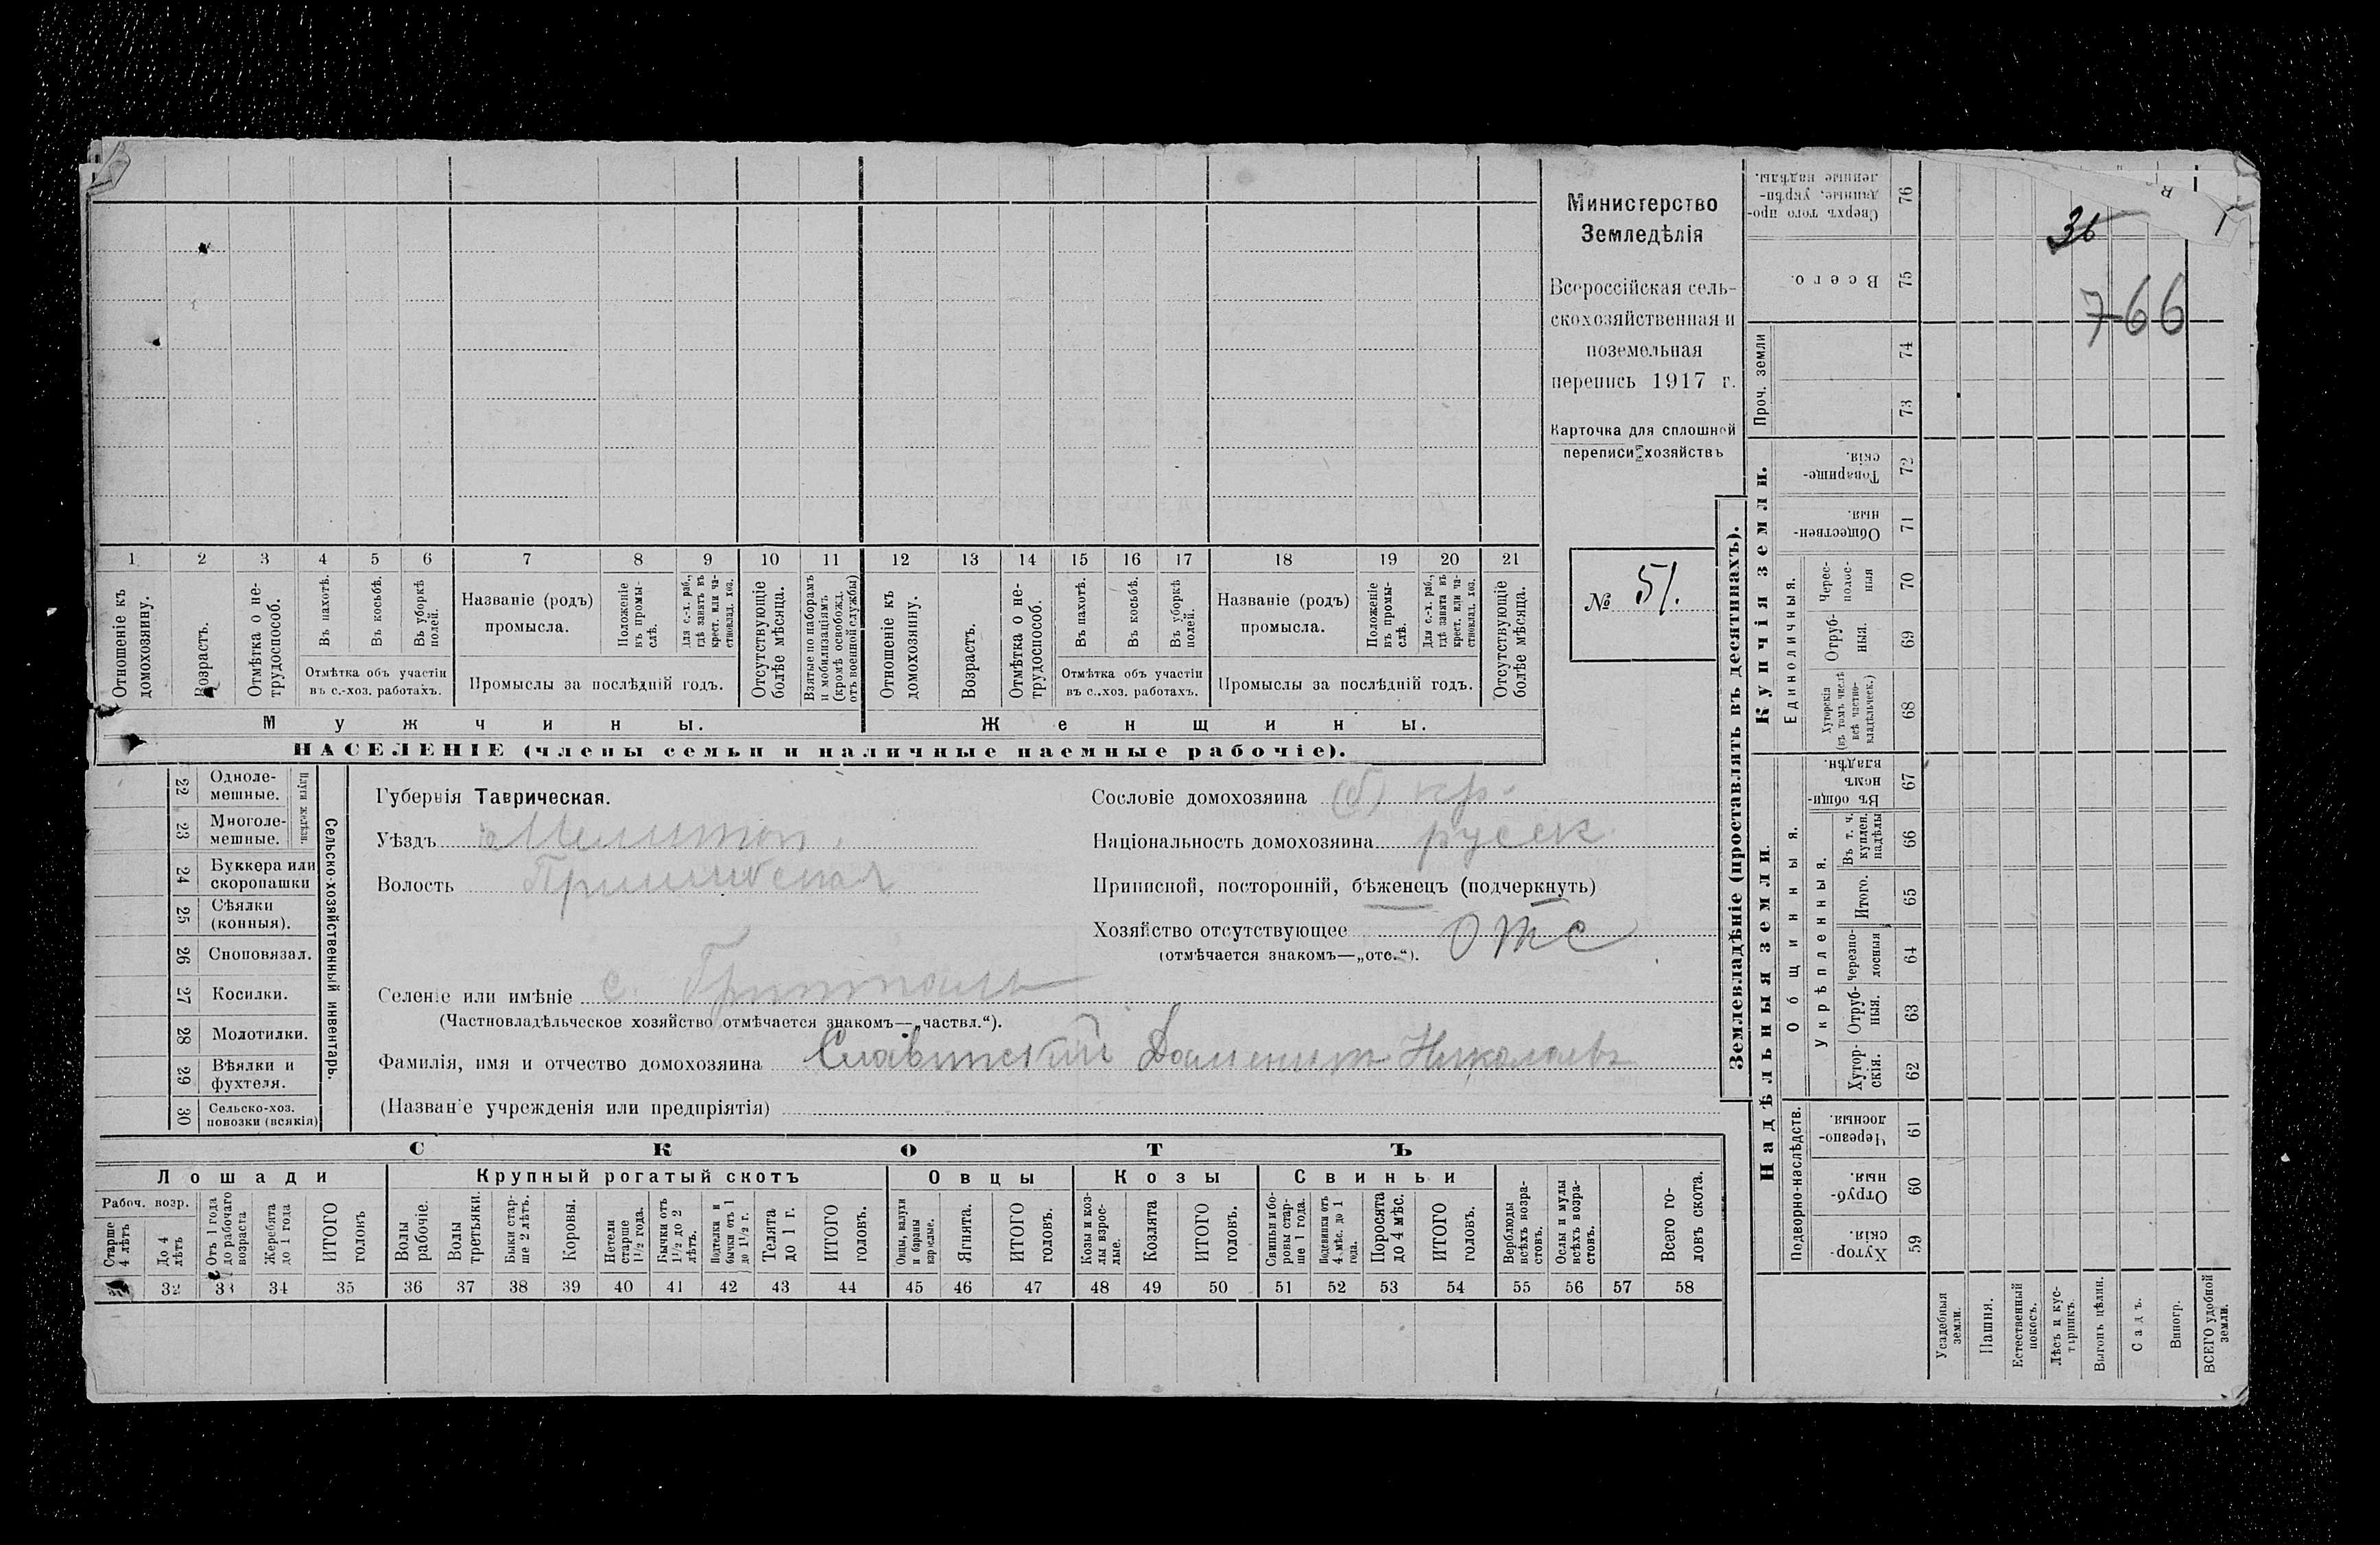 Министерство
Земледѣлія
Всероссійская сель-
скохозяйственная и
поземельная
перепись 1917 г.
Карточка для сплошной
переписи хозяйствъ
№ 51.
36
766
1 2 3 4 5 6 7 8 9 10 11 12 13 14 15 16 17 18 19 20 21
Отношеніе къ домохозяину.
Возрастъ.
Отмѣтка о не-трудоспособ.
Въ пахотѣ.
Въ косьбѣ.
Въ уборкѣ полей.
Отмѣтка объ участіи
въ с.-хоз. работахъ.
Названіе (родъ)
промысла.
Положеніе въ промы-слѣ.
Для с.-х. раб., гдѣ занятъ въ крест. или ча-стновлад. хоз.
Промыслы за послѣдній годъ.
Отсутствующіе болѣе мѣсяца.
Взятые по наборамъ и мобилизаціямъ (кромѣ освобожд. отъ военной службы)
Отношеніе къ домохозяину.
Возрастъ.
Отмѣтка о не-трудоспособ.
Въ пахотѣ.
Въ косьбѣ.
Въ уборкѣ полей.
Отмѣтка объ участіи
въ с.-хоз. работахъ.
Названіе (родъ)
промысла.
Положеніе въ промы-слѣ.
Для с.-х. раб., гдѣ занята въ крест. или ча-стновлад. хоз.
Промыслы за послѣдній годъ.
Отсутствующіе болѣе мѣсяца.
Мужчины. Женщины.
НАСЕЛЕНІЕ (члены семьи и наличные наемные рабочіе).
Сельско-хозяйственный инвентарь.
Плуги желѣзн.
22 Одноле-мешные.
23 Многоле-мешные.
24 Буккера или скоропашки
25 Сѣялки (конныя).
26 Сноповязал.
27 Косилки.
28 Молотилки.
29 Вѣялки и фухтеля.
30 Сельско-хоз. повозки (всякія)
Губернія Таврическая.
Уѣздъ Мелитоп.
Волость Пришибская
Сословіе домохозяина (б) кр.
Національность домохозяина русск.
Приписной, посторонній, бѣженецъ (подчеркнуть)
Хозяйство отсутствующее отс
(отмѣчается знакомъ—„отс.“).
Селеніе или имѣніе с.
(Частновладѣльческое хозяйство отмѣчается знакомъ—„частвл.“).
Фамилія, имя и отчество домохозяина Славинский Николаевъ
(Названіе учрежденія или предпріятія)
СКОТЪ
Лошади Крупный рогатый скотъ Овцы Козы Свиньи
Рабоч. возр.
Старше 4 лѣтъ
До 4 лѣтъ
Отъ 1 года до рабочаго возраста
Жеребята до 1 года
ИТОГО головъ
Волы рабочіе.
Волы третьяки.
Быки стар-ше 2 лѣтъ.
Коровы.
Нетели старше 1½ года.
Бычки отъ 1½ до 2 лѣтъ.
Подтелки и бычки отъ 1 до 1½ г.
Телята до 1 г.
ИТОГО головъ.
Овцы, валухи и бараны взрослые.
Ягнята.
ИТОГО головъ.
Козы и коз-лы взрос-лые.
Козлята
ИТОГО головъ.
Свиньи и бо-ровы стар-ше 1 года.
Подсвинки отъ 4 мѣс. до 1 года.
Поросята до 4 мѣс.
ИТОГО головъ.
Верблюды всѣхъ возра-стовъ.
Ослы и мулы всѣхъ возра-стовъ.
Всего го-ловъ скота.
32 33 34 35 36 37 38 39 40 41 42 43 44 45 46 47 48 49 50 51 52 53 54 55 56 57 58
Землевладѣніе (проставлять въ десятинахъ).
Надѣльныя земли. Купчія земли. Проч. земли
Подворно-наслѣдств. Общинныя. Единоличныя.
Укрѣпленныя.
Хутор-скія. 59
Отруб-ныя. 60
Черезпо-лосныя. 61
Хутор-скія. 62
Отруб-ныя. 63
Черезпо-лосныя 64
Итого. 65
Въ т. ч. куплен. надѣлы 66
Въ общи-номъ владѣн. 67
Хуторскія (въ томъ числѣ всѣ частно-владѣльческ.) 68
Отруб-ныя. 69
Черес-полос-ныя 70
Обществен-ныя. 71
Товарище-скія. 72
73
74
Всего. 75
Сверхъ того про-данные, укрѣп-ленные надѣлы. 76
Усадебныя земли.
Пашня.
Естественный покосъ.
Лѣсъ и кус-тарникъ.
Выгонъ цѣлин.
Садъ.
Виногр.
ВСЕГО удобной земли.